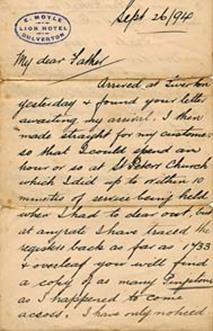 E. MOYLE
LION HOTEL
DULVERTON
Sept 26/94
My dear Father
Arrived at Tiverton
yesterday & found your letter
awaiting my arrival. I then
made straight for my customer
so that I could spend an
hour or so at St Peters Church
which I did up to within 10
minutes of service being held
when I had to clear out, but
at any rate I have traced the
registers back as far as 1733
& overleaf you will find
a copy of as many
as I happened to come
across. I have only noticed